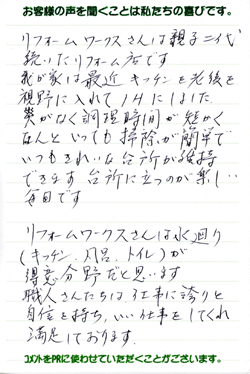 お客様の声を聞くことは私たちの喜びです。
リフォームワークスさんは親子二代
続いたリフォーム店です
我が家は最近キッチンを老後を
視野に入れてIHにしました
炎がなく調理時間が短かく
なんといっても掃除が簡単で
いつもきれいな台所が維持
できます 台所に立つのが楽しい
毎日です
リフォームワークスさんは水廻り
(キッチン、風呂、トイレ)が
得意分野だと思います
職人さんたちは仕事に誇りと
自信を持ち、いい仕事をしてくれ
満足しております。
コメントをPRに使わせていただくことがございます。